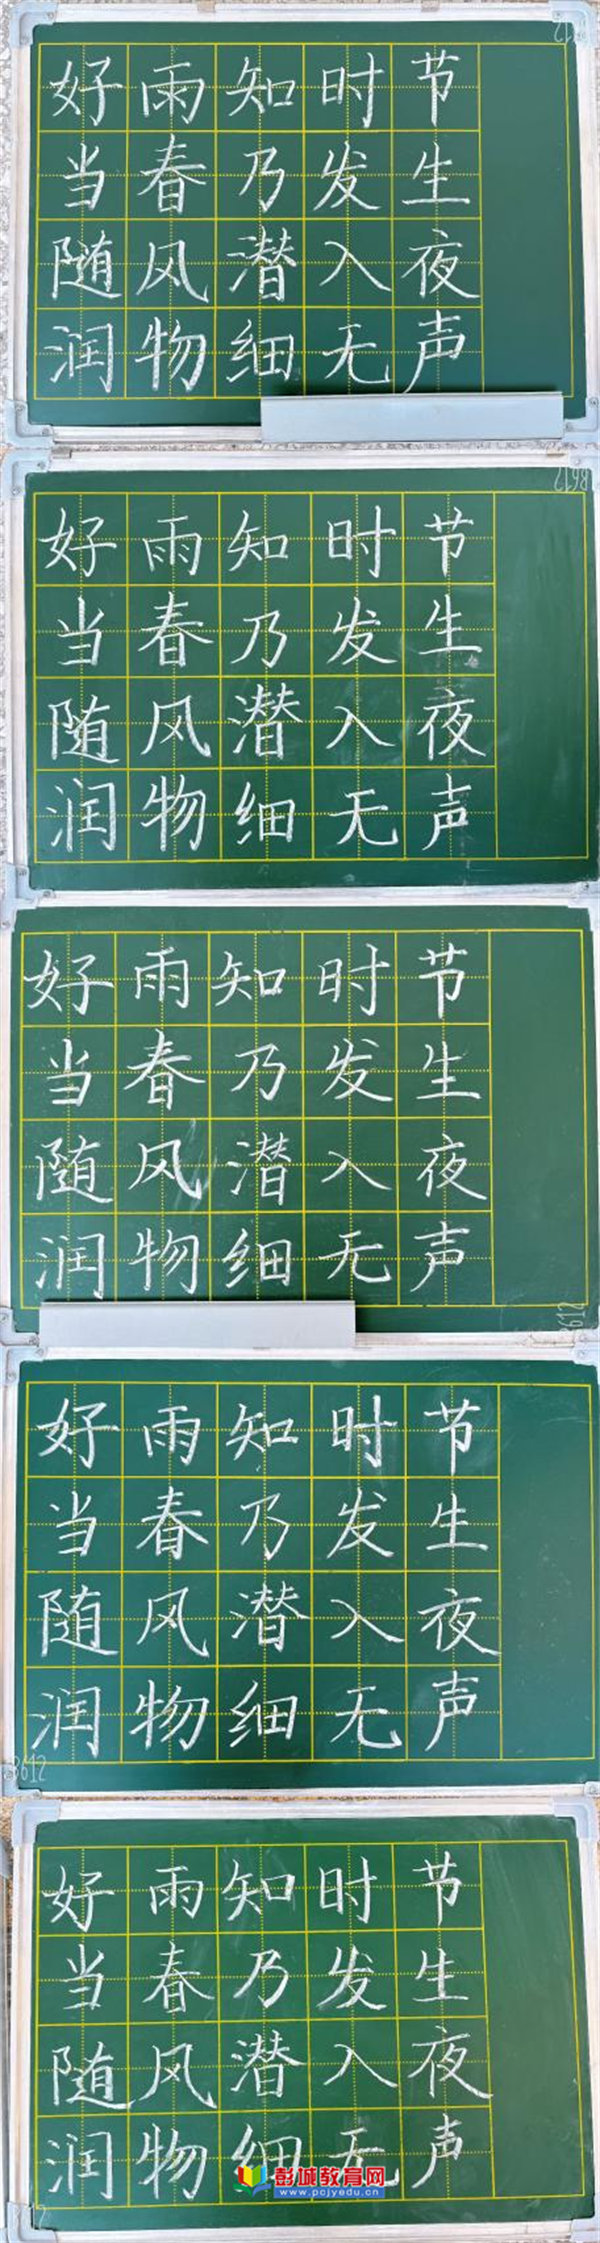 B612
好雨知时节
当春乃发生
随风潜入夜
润物细无声
B612
好雨知时节
当春乃发生
随风潜入夜
润物细无声
好雨知时节
当春乃发生
随风潜入夜
润物细无声
B612
好雨知时节
当春乃发生
随风潜入夜
润物细无声
B612
好雨知时节
当春乃发生
随风潜入夜
润物细无声
彭城教育网
www.pcjyedu.cn